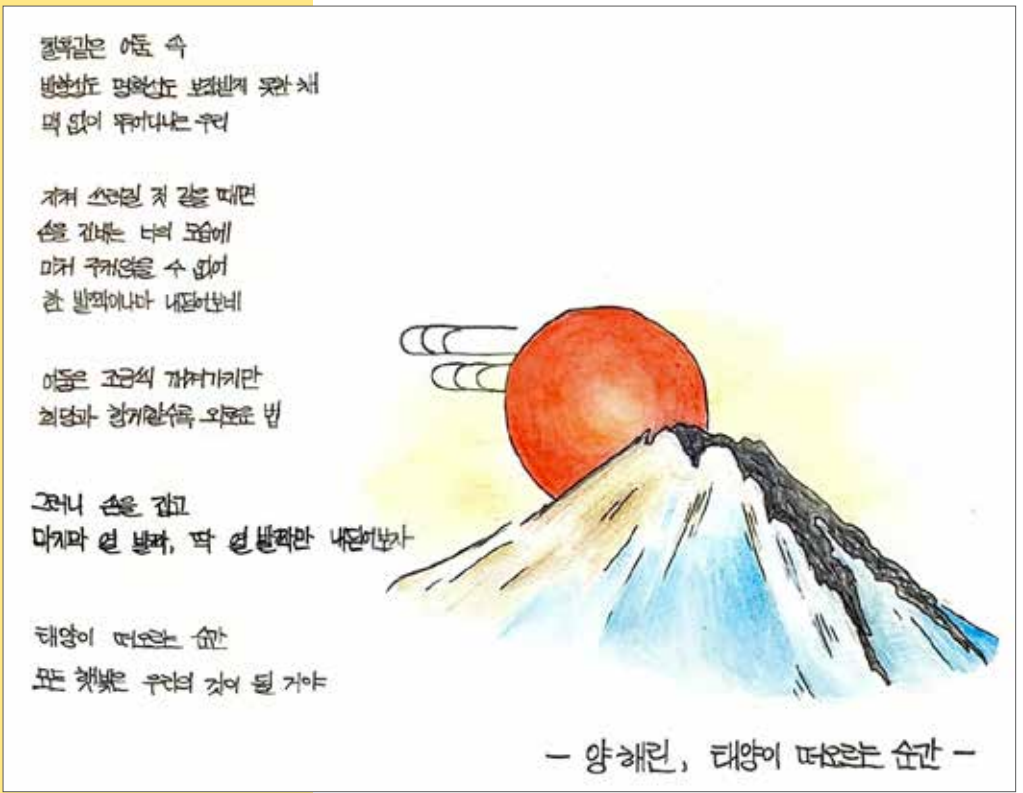 칠흑같은 어둠 속
방향성도 명확성도 보장받지 못한 채
맥 없이 뛰어다니는 우리
지쳐 쓰러질 것 같을 때면
손을 건네는 너의 모습에
마저 주저앉을 수 없어
한 발짝이나마 내딛어보네
어둠은 조금씩 깨져가지만
희망과 함께할수록 외로운 법
그러니 손을 잡고
마지막 열 발짝, 딱 열 발짝만 내딛어보자
태양이 떠오르는 순간
모든 햇빛은 우리의 것이 될 거야
- 양해린, 태양이 떠오르는 순간 -